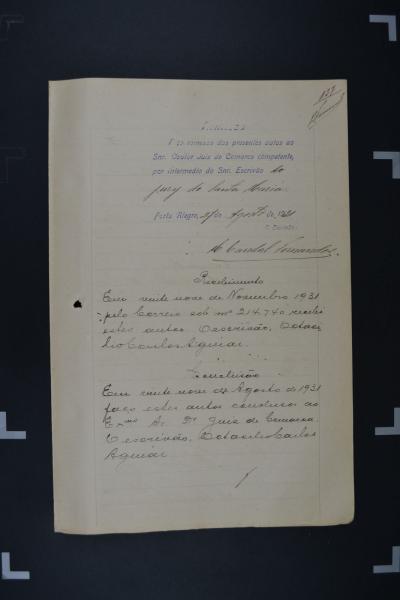 Faço remessa dos presentes autos ao
Snr. Doutor Juiz de Comarca competente,
por intermedio do Snr. Escrivão do
jury de Santa Maria
Porto Alegre, de Agosto de 1931
O Escrivão
Recebimento
Em vinte nove de Novembro 1931
pelo Correio sob nº 214.740 recebi
estes autos. O escrivão, Octaci-
lio Carlos Aguiar.
Conclusão
Em vinte nove de Agosto de 1931
faço estes autos conclusos ao
Exmo Sr. Dr. Juiz de Comarca.
O escrivão, Octacilio Carlos
Aguiar